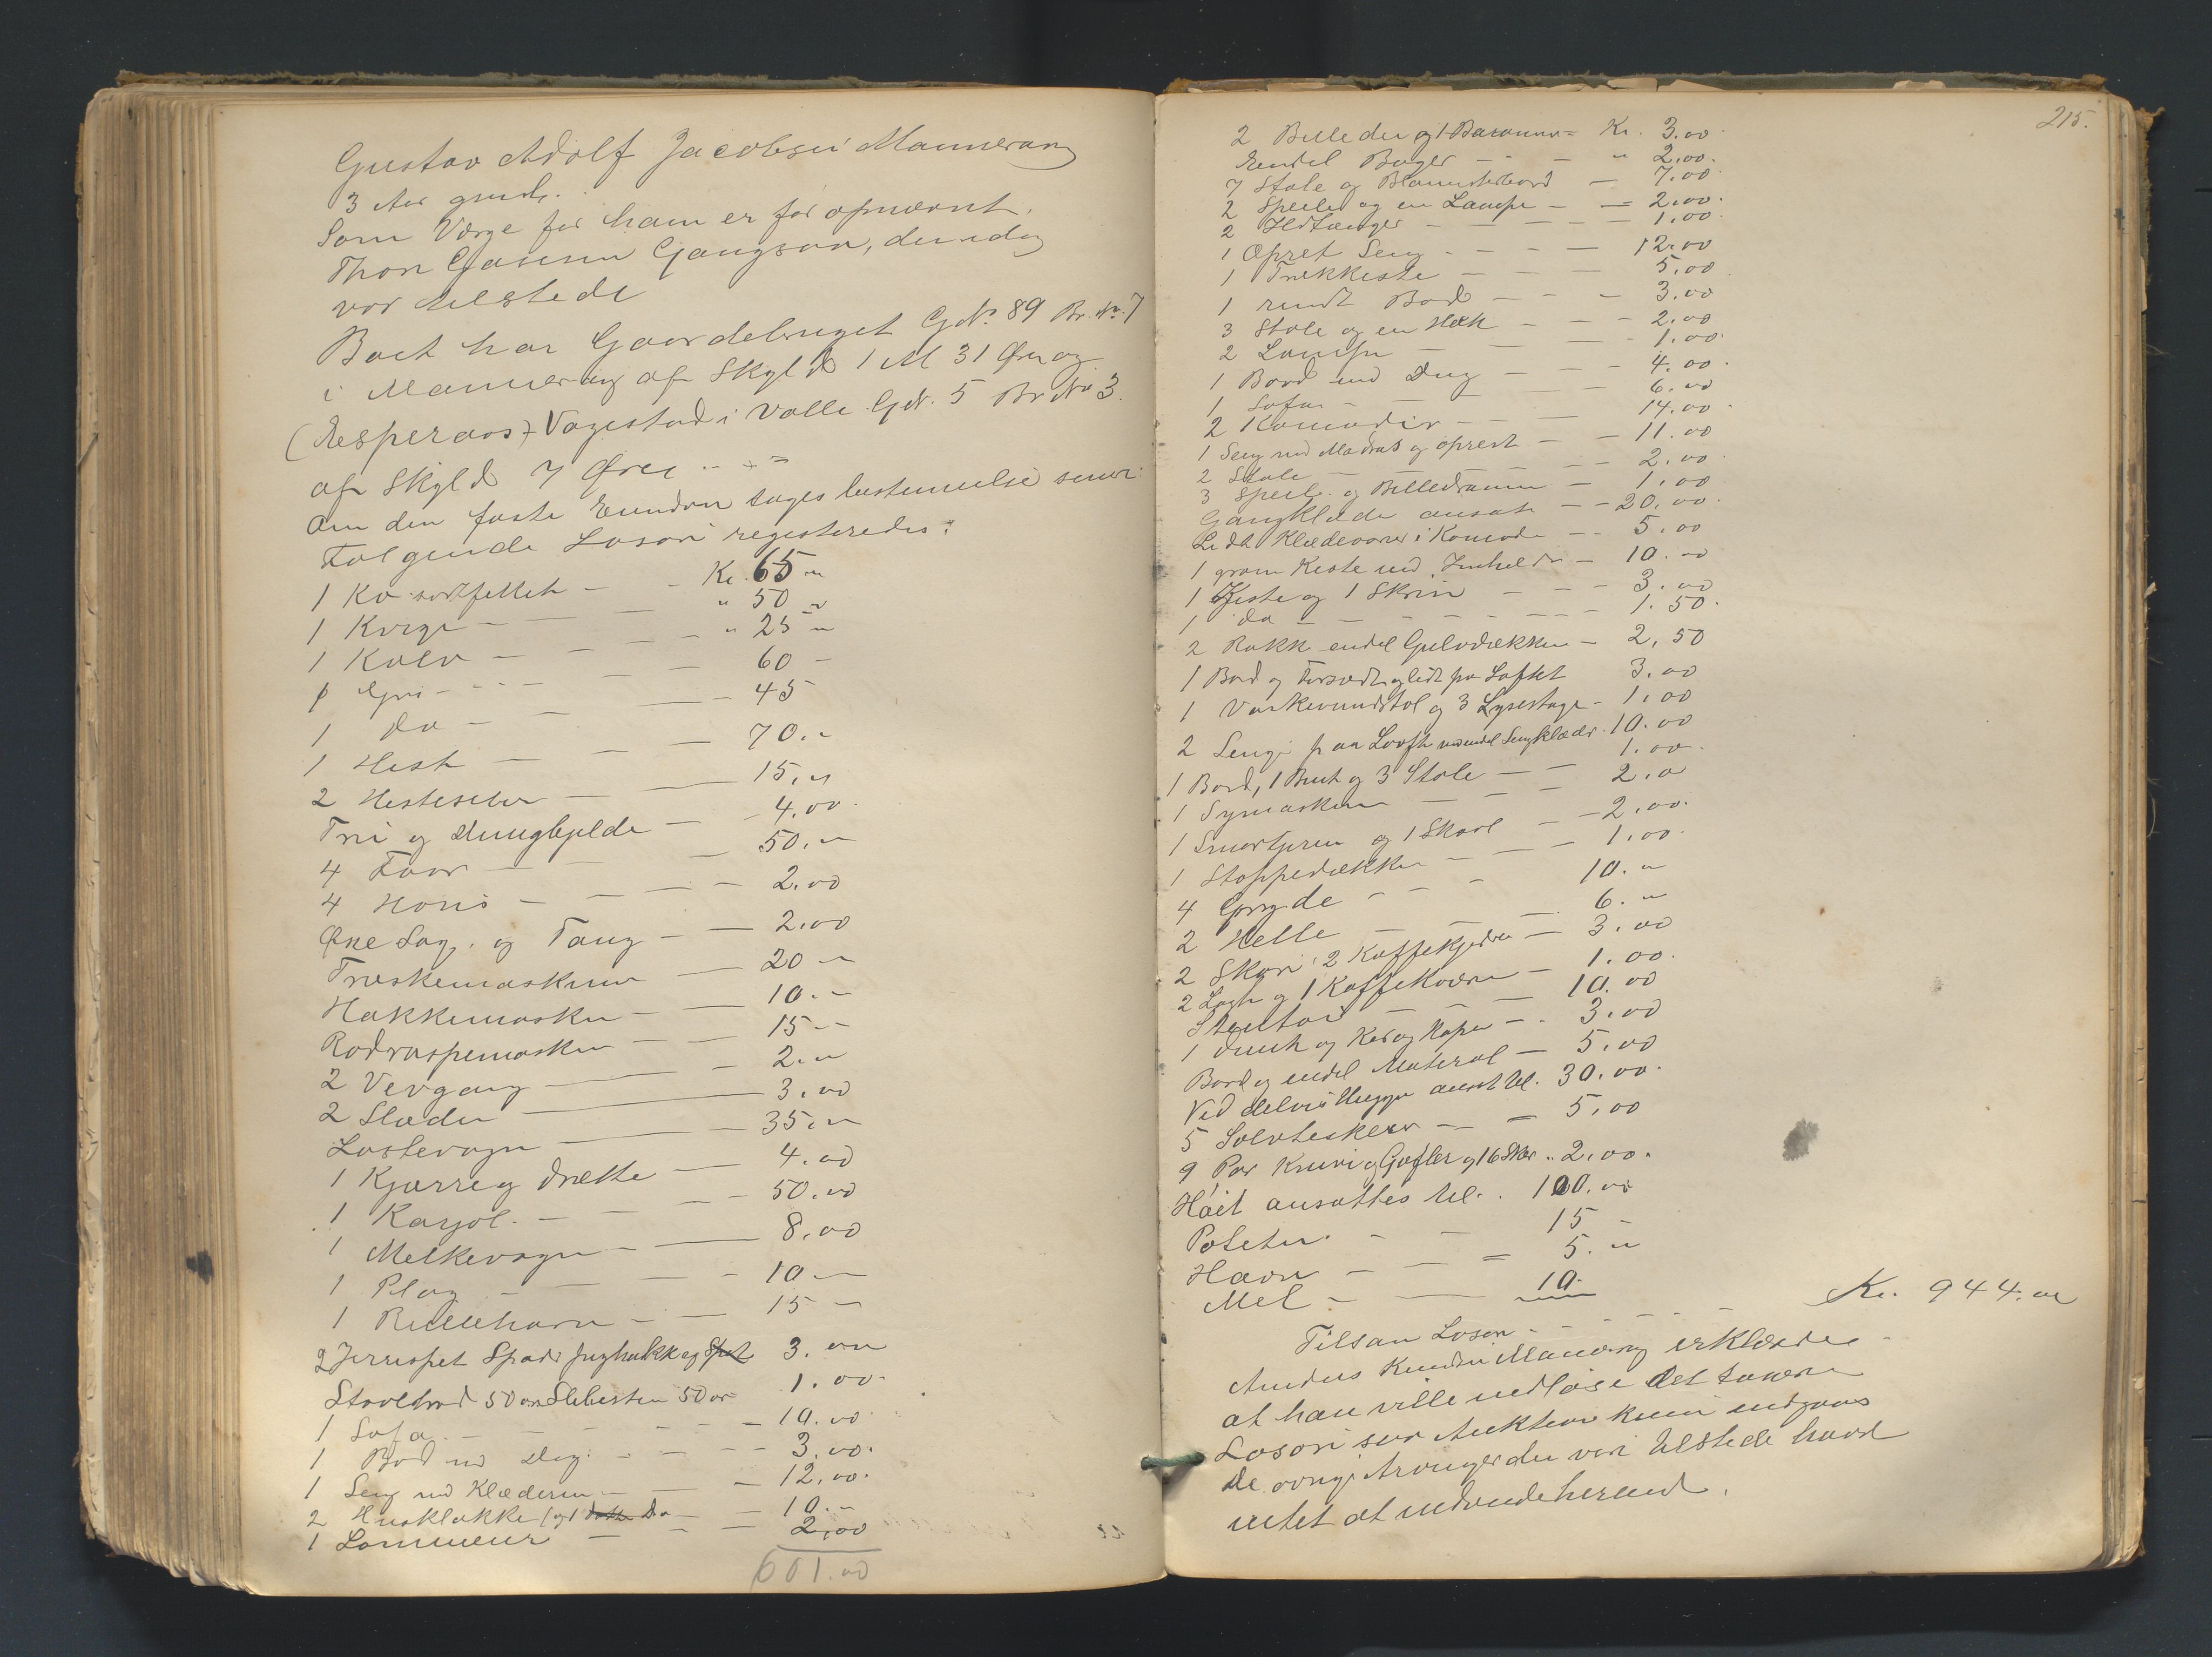 Gustav Adolf Jacobsen Mannevang
3 Aar gml.
Som Værge for ham er før opnævnt
Thor Gangsaa, der idag
var tilstede
Boet har Gaardebruget G.N. 89 Br.N. 7
i Mannevang af Skyld 1 M 31 Øre og
(Æsperaas) Vagestad i Valle G.N. 5 Br.No 3.
af Skyld 7 Øre
Om den faste Eiendom tages bestemmelse senere
Følgende Løsøre registeredes:
1 Ko sortfellet - Kr. 65 "
1 Kvige - " 50 "
1 Kalv - " 25 "
1 Gris - 60 -
1 do - 45
1 Hest - 70. "
2 Hesteseler - 15. "
Tri og - 4.00
4 Faar - 50. "
4 Høns - 2.00
Øxe Sag. og Tang - 2.00
Træskemaskine 20 "
Hakkemaskin - 10. -
Rodraspemaskin - 15 -
2 Vevgang - 2. "
2 Slæder - 3.00
Lastevogn - 35. "
1 Kjærre og Drætte - 4.00
1 Karjol. - 50.00
1 Melkevogn - 8.00
1 Plog - 10 -
1 Rulleharv - 15 -
2 Jernspet Spade og 3. 00
50 øre Slibesten 50 ør 1.00
1 Sofa - 10.00
1 Bord med Dug - 3.00.
1 Seng med Klæder - 12.00.
2 Husklokke (og 1 Do - 10. -
1 Lommeur - 2.00
601.00
215.
2 Billeder og 1 Barometer - Kr. 3.00
Endel Bøger - " 2.00.
7 Stole og Blomsterbord - 7.00
2 Speile og en Lampe - 2.00.
2 Ildtænger - 1.00
1 Opret Seng - 12.00
1 Trækkiste - 5.00
1 rundt Bord - 3.00
3 Stole og en - 2.00
2 Lamper - 1.00
1 Bord med Dug - 4.00.
1 Sofa - 6.00
2 Komoder - 14.00
1 Seng med Madras og oprest - 11.00
2 Stole - 2.00
3 Speile og Billedramme - 1.00
Gangklæde ansat - 20.00.
Lidt Klædevarer i Komode - 5.00
1 grøn Kiste med Inhold - 10.00
1 Kiste og 1 Skrin - 3.00
1 do - 1.50.
2 Rokk endel Gulvdækken - 2.50
1 Bord og lidt paa Loftet 3.00
1 og 3 Lysestage - 1.00
2 Senge paa Loft med endel Sengklæder 10.00
1 Bord, 1 Benk og 3 Stole - 1.00.
1 Symaskin - 2.0
1 og 1 Skaal - 2.00.
1 Stoppedækken - 1.00.
4 Gryde - 10. "
2 Helle - 6. "
2 Skeer 2 Kaffekjedler - 3.00
2 og 1 Kaffekværn - 1.00.
Stentøi - 10.00
1 og - 3.00
Bord og endel Material - 5.00
Ved delvis Hugget ansat til. 30.00.
5 Sølvteskeer - 5.00
9 Par Knive og Gafler og 16 Skeer " 2.00.
Høet ansattes til. 100.00
Poteter. - 15 -
Havre - 5. "
Mel - 10.-
Tilsam Løsøre - Kr. 944.00
Anders Knudsen Mannevang erklærede
at han ville indløse det taxerte
Løsøre som Auktion kunde undgaaes
De øvrige Arvinger der vare tilstede havde
intet at indvende herimod.